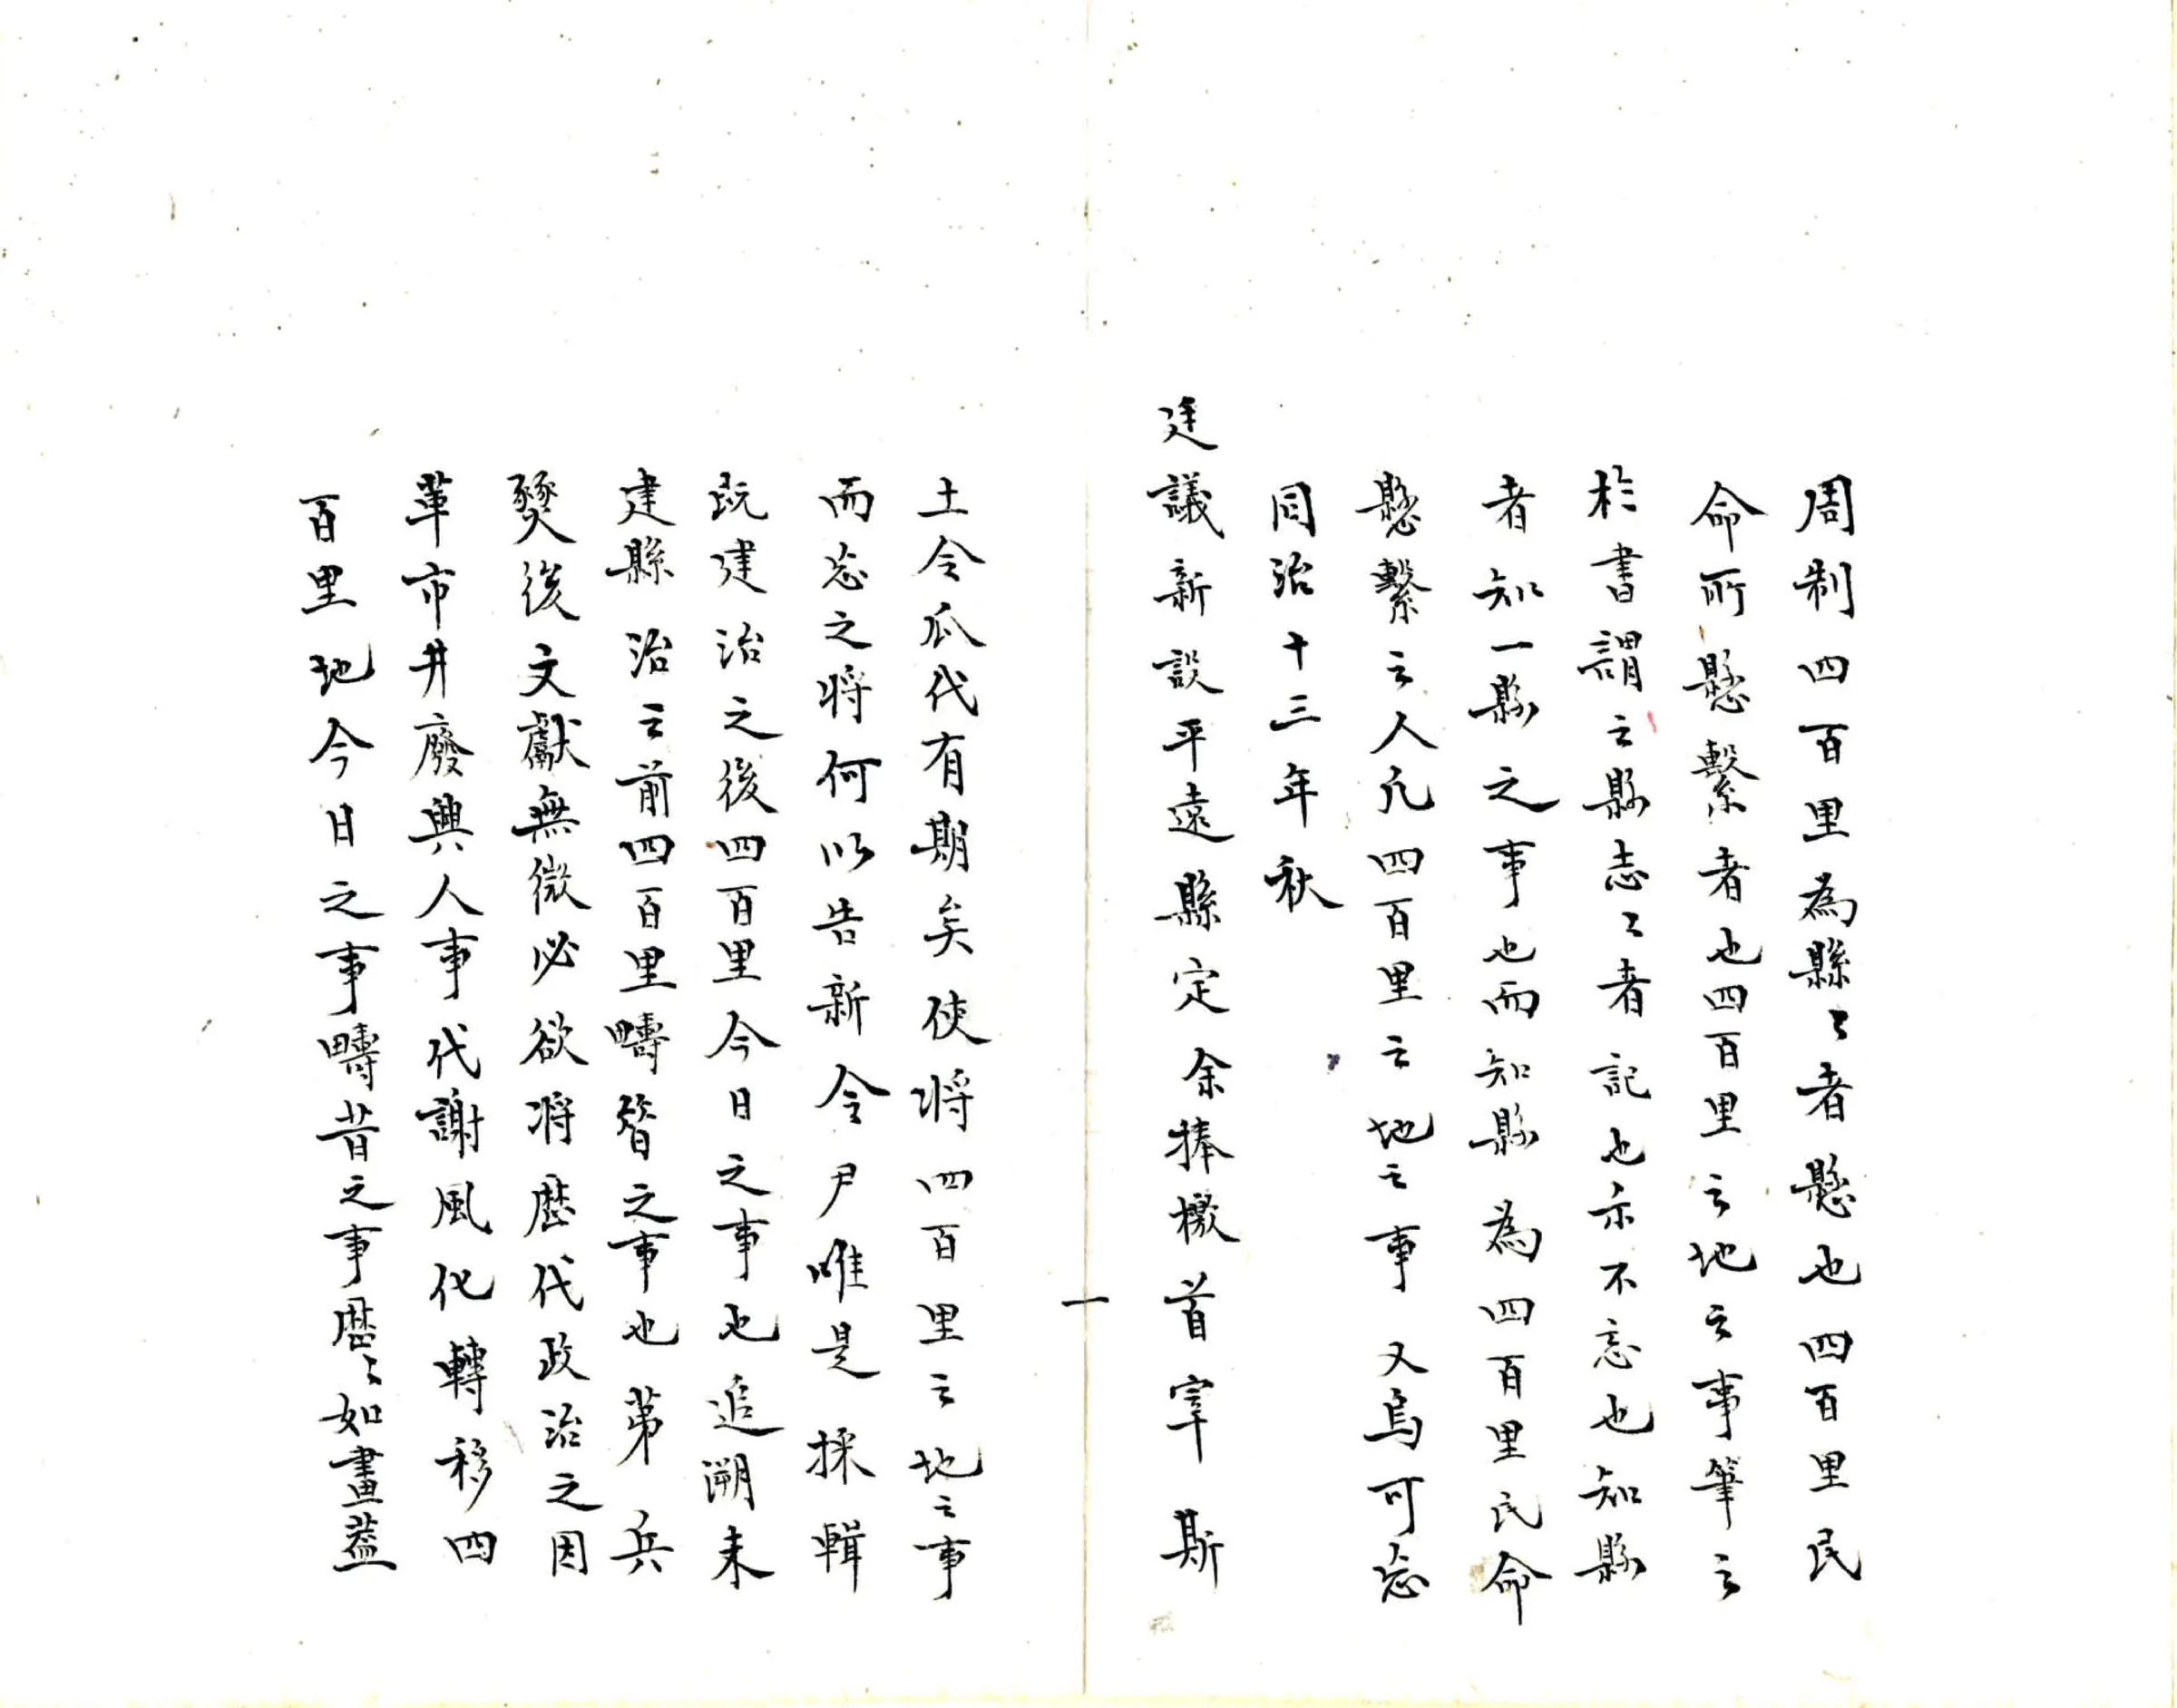 周制四百里為縣〻者懸也四百里民
命所懸繫者也四百里之地之事筆之
於書謂之縣志〻者記也示不忘也知縣
者知一縣之事也而知縣為四百里民命
懸繫之人凡四百里之地之事又烏可忘
同治十三年秋
廷議新設平遠縣定余捧檄首宰斯
一
土令瓜代有期矣使將四百里之地之事
而忘之將何以告新令尹唯是採輯
既建治之後四百里今日之事也追溯未
建縣治之前四百里疇昔之事也第兵
燹後文獻無徵必欲將歷代政治之因
革市井廢興人事代謝風化轉移四
百里地今日之事疇昔之事歷〻如畫蓋